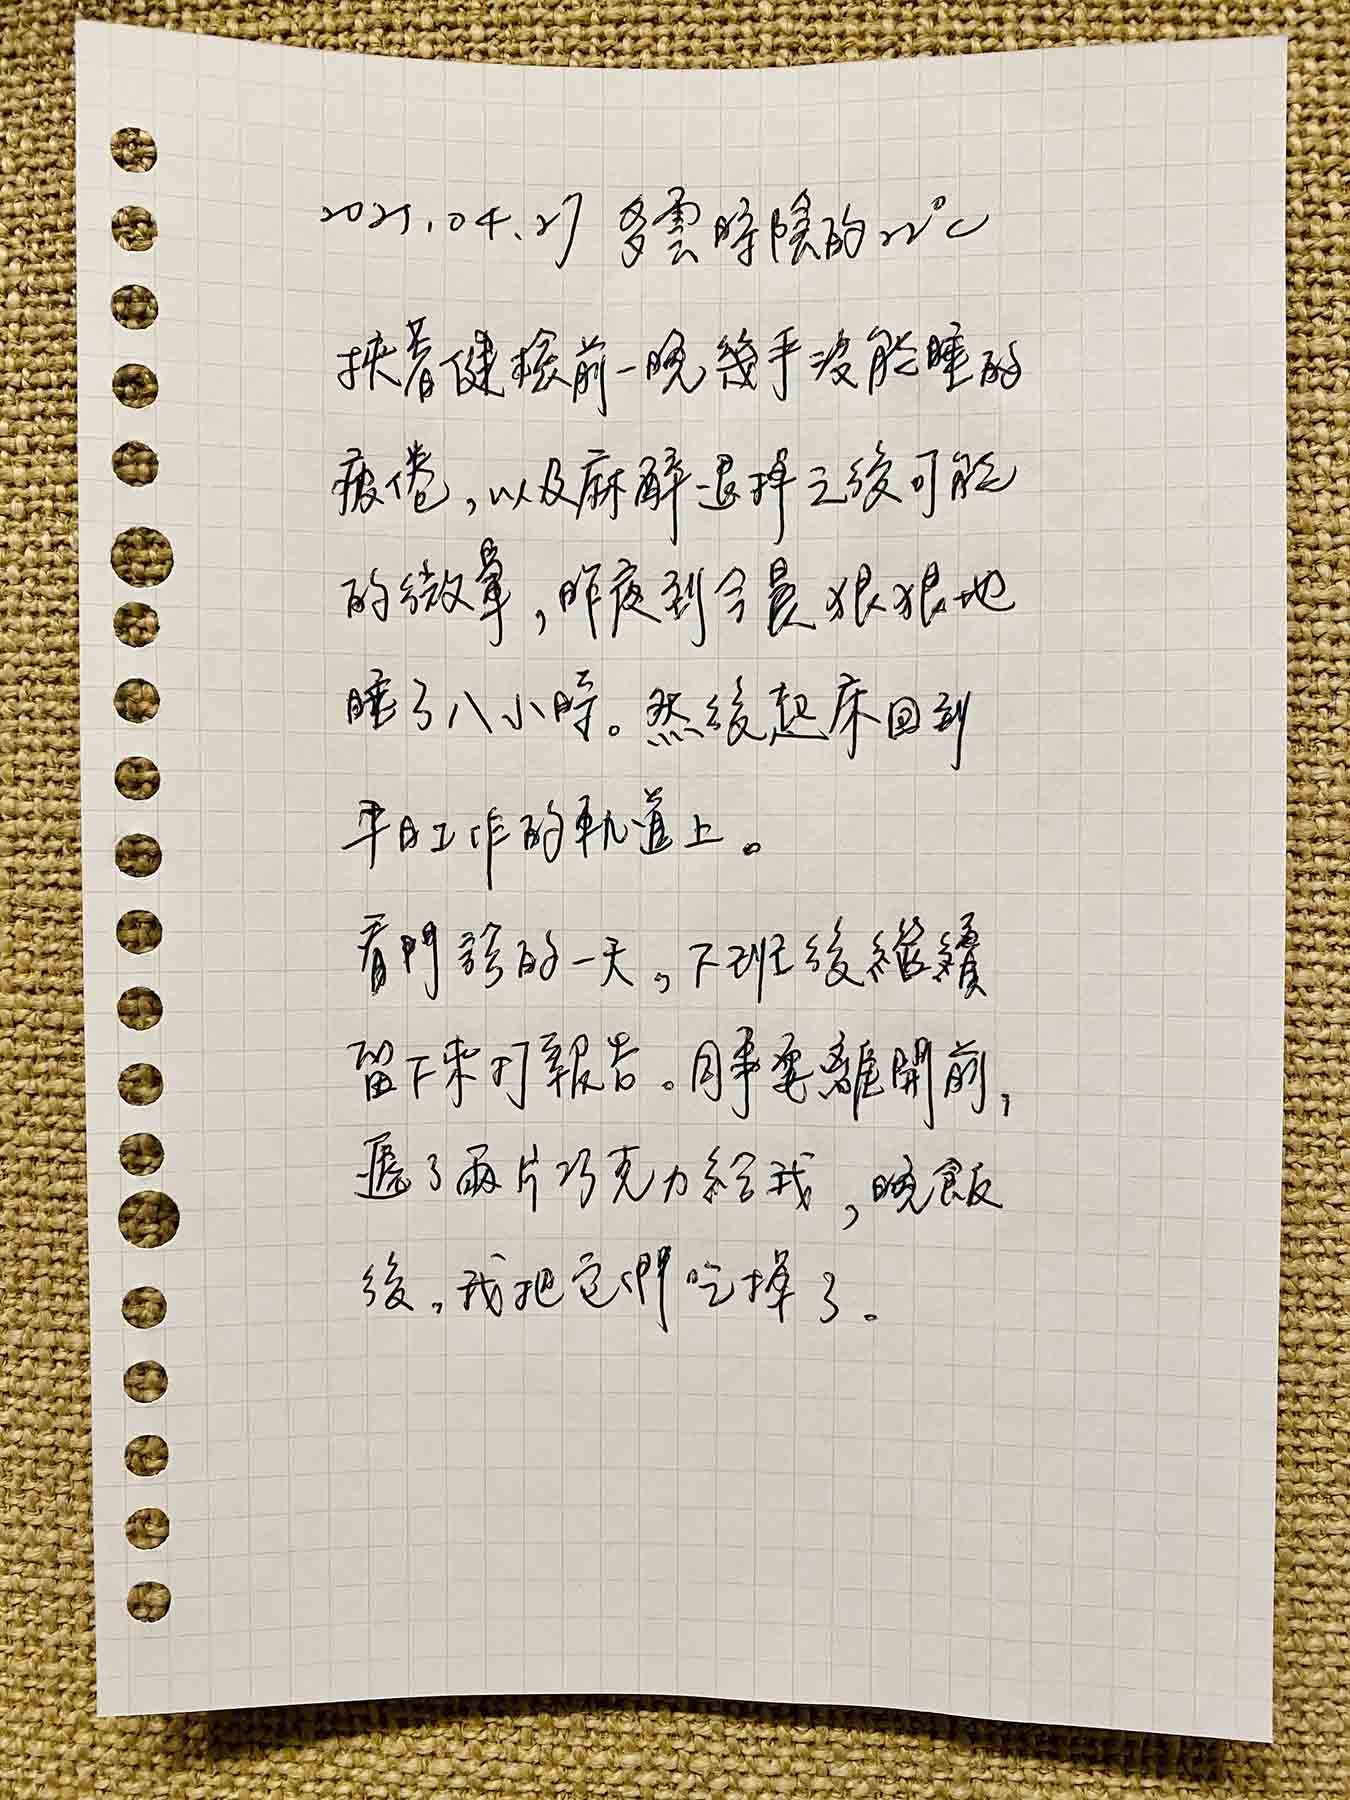 2021.04.27 多雲時陰的22°C
挾著健檢前一晚幾乎沒能睡的
疲倦，以及麻醉退掉之後可能
的微暈，昨夜到今晨狠狠地
睡了八小時。然後起床回到
平日工作的軌道上。
看門診的一天，下班後繼續
留下來打報告。同事要離開前，
遞了兩片巧克力給我，晚飯
後，我把它們吃掉了。